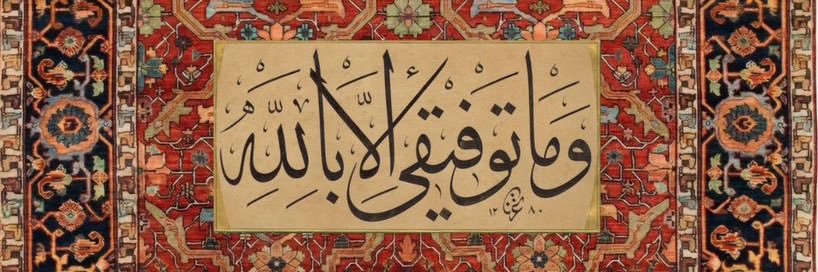 وَمَا تَوْفِيقِى اِلَّا بِاللّٰهِ
١٢٨٠